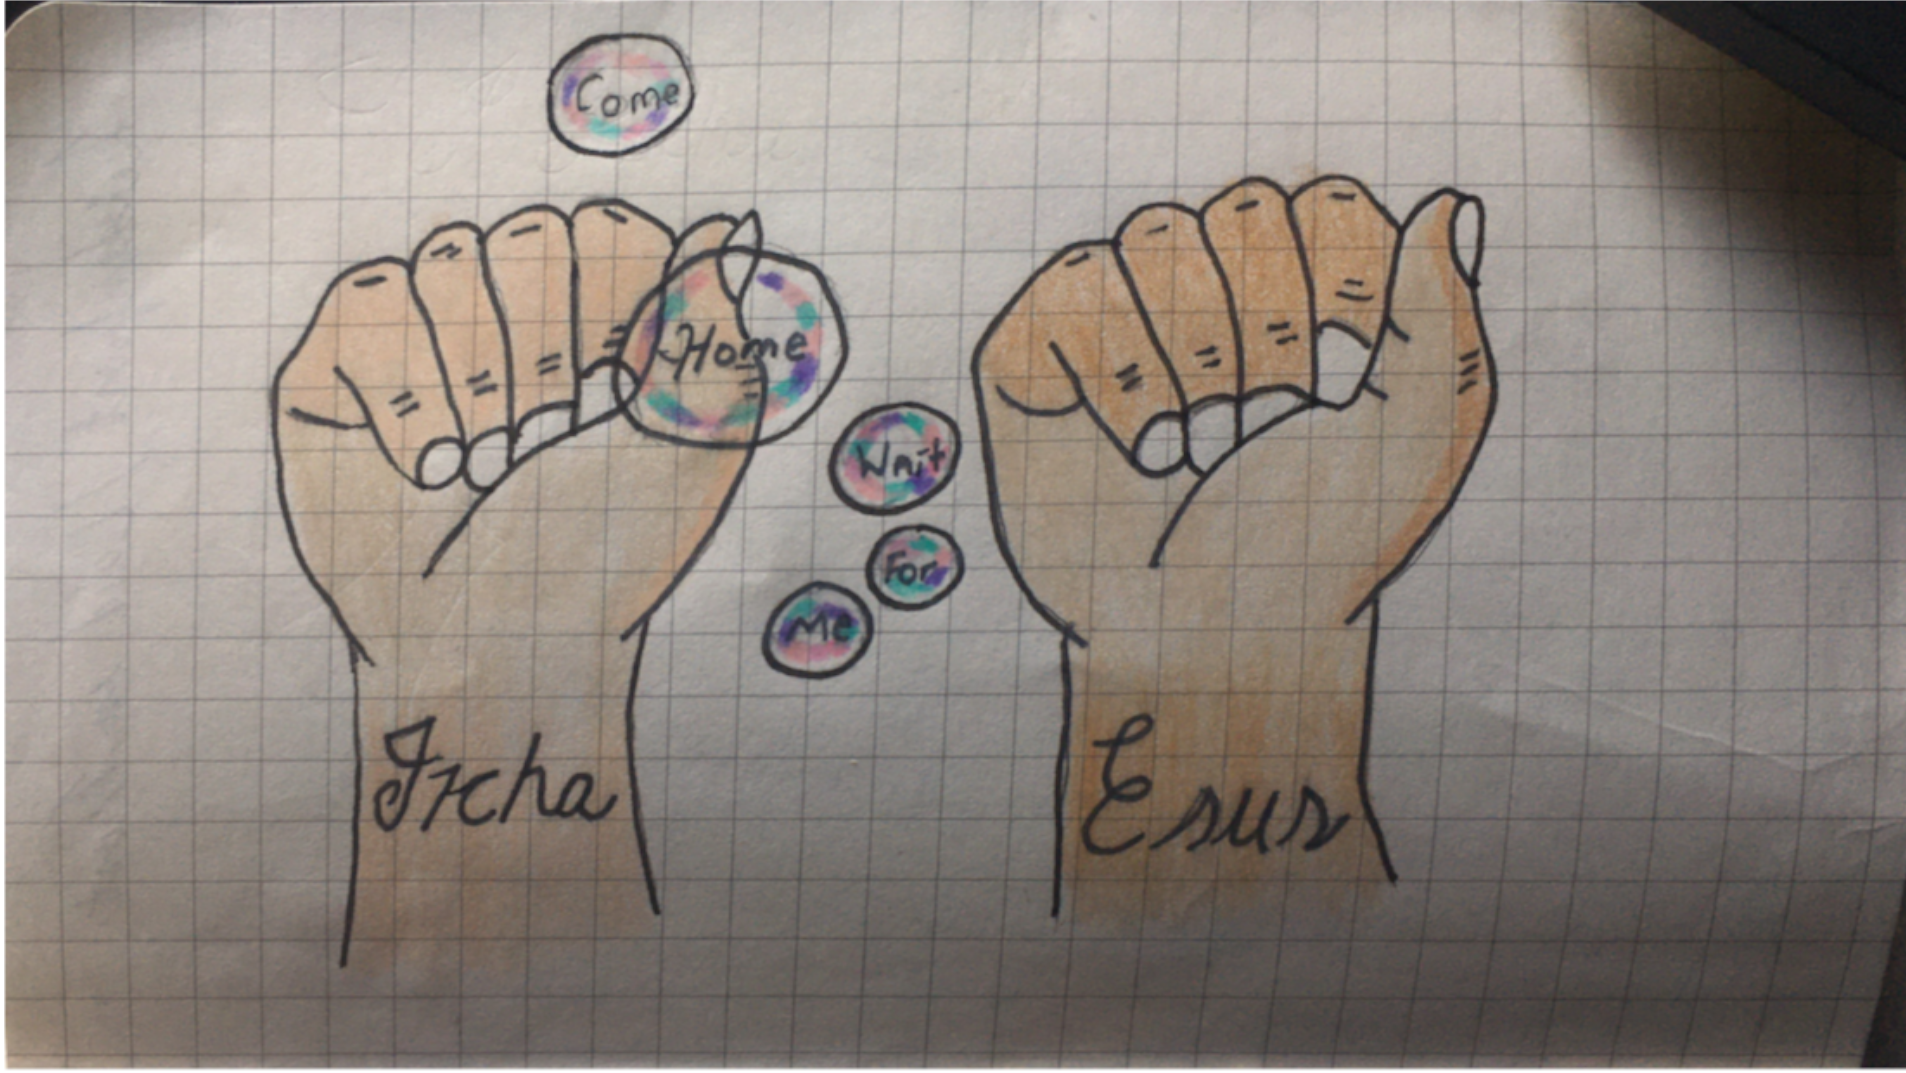 Come
Home
Wait
For
Me
Ircha
Esus